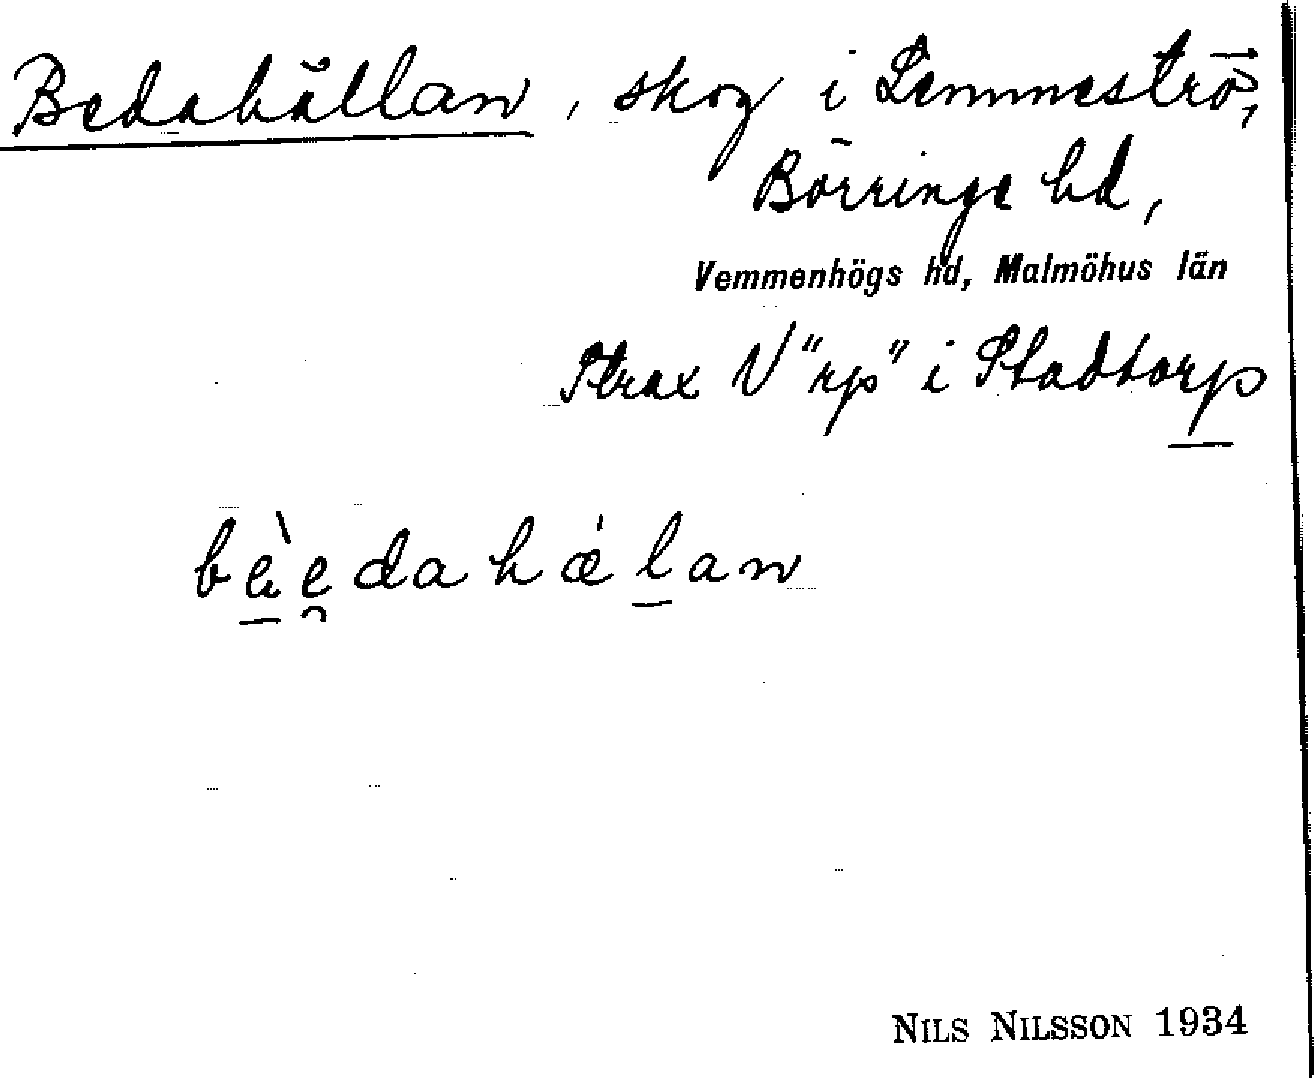 Bedahällan, skog i Lemmeströ,
Börringe hd,
Vemmenhögs hd, Malmöhus län
Strax V "rp" i Stadtorp
bèe̯dahǽlan
NILS NILSSON 1934